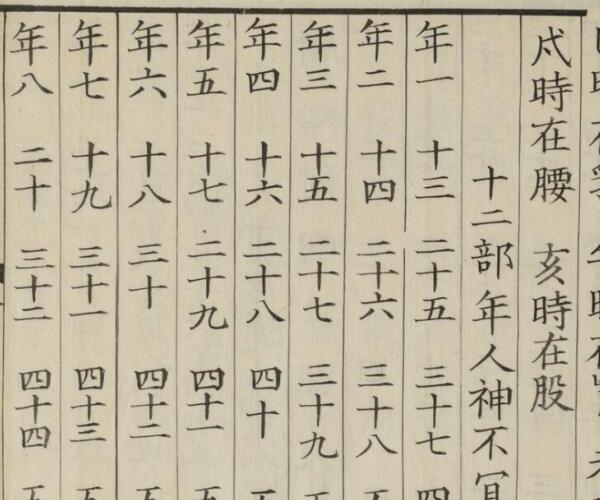 戌時在腰 亥時在股
十二部年人神不冝
年一 十三 二十五 三十七 四
年二 十四 二十六 三十八
年三 十五 二十七 三十九
年四 十六 二十八 四十
年五 十七 二十九 四十一
年六 十八 三十 四十二
年七 十九 三十一 四十三
年八 二十 三十二 四十四